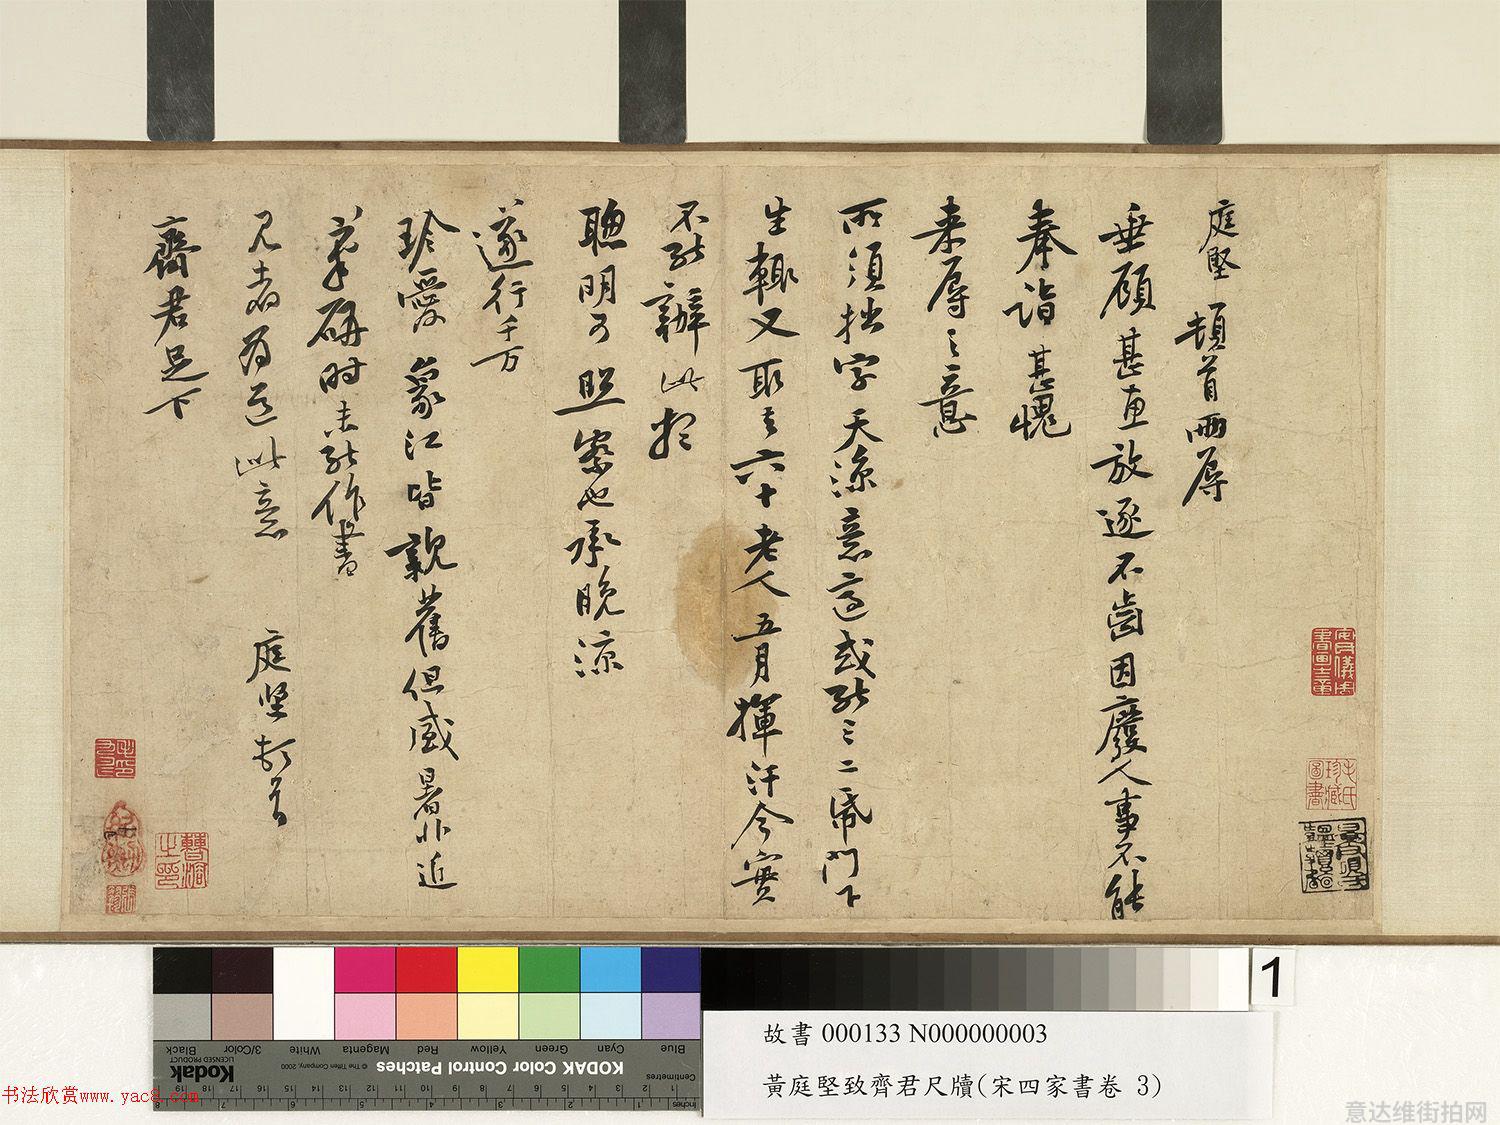 庭堅頓首兩辱
垂顧甚惠放逐不齒因廢人事不能
奉詣甚愧
来辱之意
所須拙字天凉意適或能三二紙門下
生輙又取去六十老人五月揮汗今實
不能辦此想
聰明可照察也承晚凉
遂行千万
珍愛象江皆親舊但盛暑非近
筆硯時未能作書
見者為道此意 庭堅頓首
齊君足下
曹溶之印
故書 000133 N000000003
黃庭堅致齊君尺牘(宋四家書卷 3)
1
KODAK Color Control Patches
Kodak
LICENSED PRODUCT
© The Tiffen Company, 2000
Blue
Cyan
Green
Yellow
Red
Magenta
White
3/Color
Black
Centimetres
Inches
书法欣赏www.yac8.com
意达维街拍网